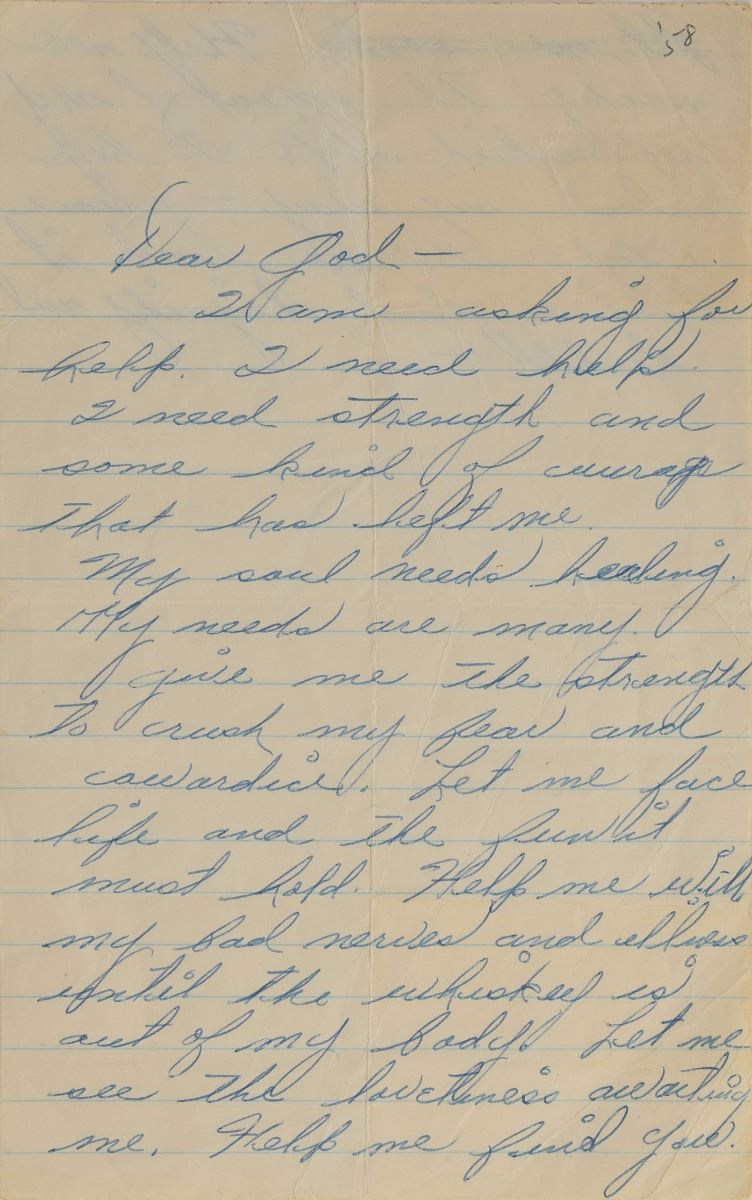 '58
Dear God —
I am asking for
help. I need help.
I need strength and
some kind of courage
that has left me.
My soul needs healing.
My needs are many.
Give me the strength
to crush my fear and
cowardice. Let me face
life and the fun it
must hold. Help me with
my bad nerves and illness
until the whiskey is
out of my body. Let me
see the loveliness awaiting
me. Help me find you.